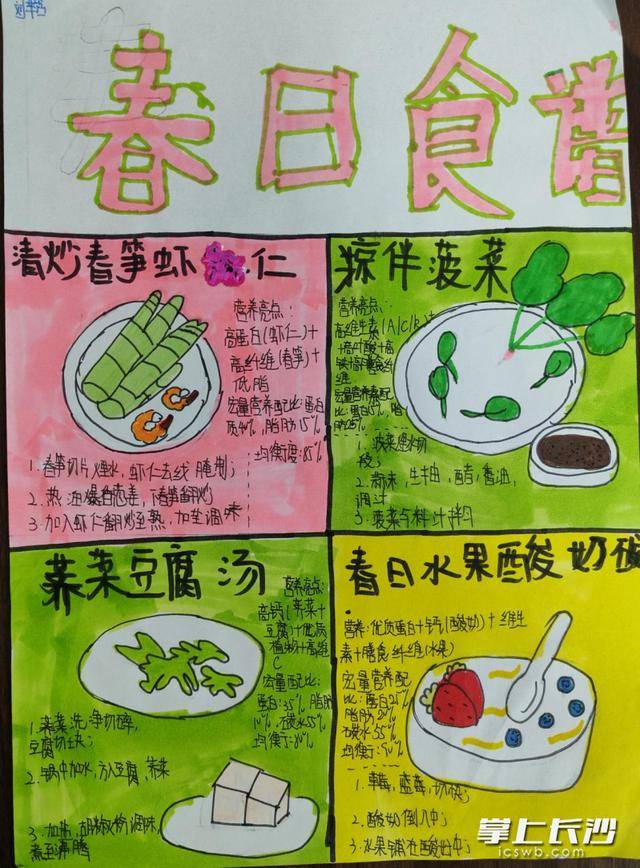 春日食谱
清炒春笋虾仁
营养亮点：
高蛋白(虾仁)+
高纤维(春笋)+
低脂
宏量营养配比：蛋白
质40%，脂肪15%
均衡度：85%
1. 春笋切片焯水，虾仁去线腌制；
2. 热油爆香葱姜，下春笋翻炒
3. 加入虾仁翻炒至熟，加盐调味
凉伴菠菜
营养亮点：
高维生素(A/C/B)
+高叶酸+高
铁+膳食纤
维
宏量营养素配
比：蛋白15%，脂
肪
1. 菠菜焯水切
段；
2. 蒜末，生抽，醋，香油，
调汁
3. 菠菜与料汁拌匀
荠菜豆腐汤
营养亮点：
高钙(荠菜+
豆腐)+优质
植物+高维
C
宏量配比：
蛋白：35%，脂肪
10%，碳水55%
均衡：80%
1. 荠菜洗净切碎，
豆腐切块；
2. 锅中加水，放入豆腐，荠菜
3. 加盐，胡椒粉调味，
煮至沸腾
春日水果酸奶碗
营养：优质蛋白+钙(酸奶)+维生
素+膳食纤维(水果)
宏量营养配
比：蛋白25%
脂肪20%
碳水55%
均衡：
1. 草莓，蓝莓，切块；
2. 酸奶倒入中；
3. 水果铺在酸奶中；
掌上长沙
icswb.com